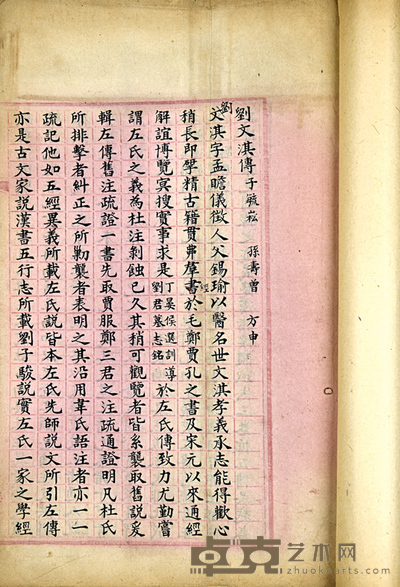 劉文淇傳 子毓崧 孫壽曾 方申
劉文淇字孟瞻儀徵人父錫瑜以醫名世文淇孝義承志能得歡心
稍長即學精古籍貫弗羣書於毛鄭賈孔之書及宋元以來通經
解誼博覽冥搜實事求是丁晏侯選訓導劉君墓志銘於左氏傳致力尤勤嘗
謂左氏之義為杜注剝蝕已久其稍可觀覽者皆系襲取舊說爰
輯左傳舊注疏證一書先取賈服鄭三君之注疏通證明凡杜氏
所排擊者糾正之所勦襲者表明之其沿用韋氏語注者亦一一
疏記他如五經異義所載左氏說皆本左氏先師說文所引左傳
亦是古文家說漢書五行志所載劉子駿說實左氏一家之學經
卓克艺术网
zhuokearts.com